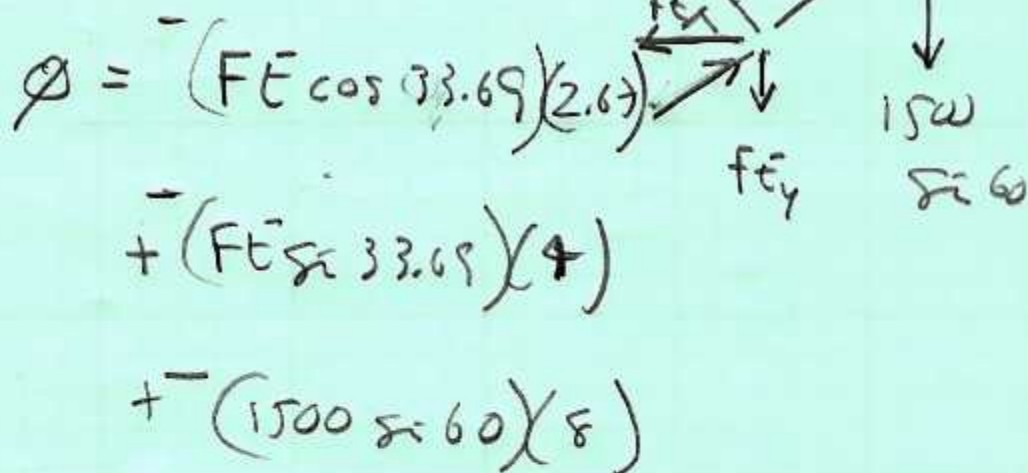 FEx
∅ = -(FE cos 33.69)(2.67)
FEy
1500
sin 60
+ -(FE sin 33.69)(4)
+ -(1500 sin 60)(8)